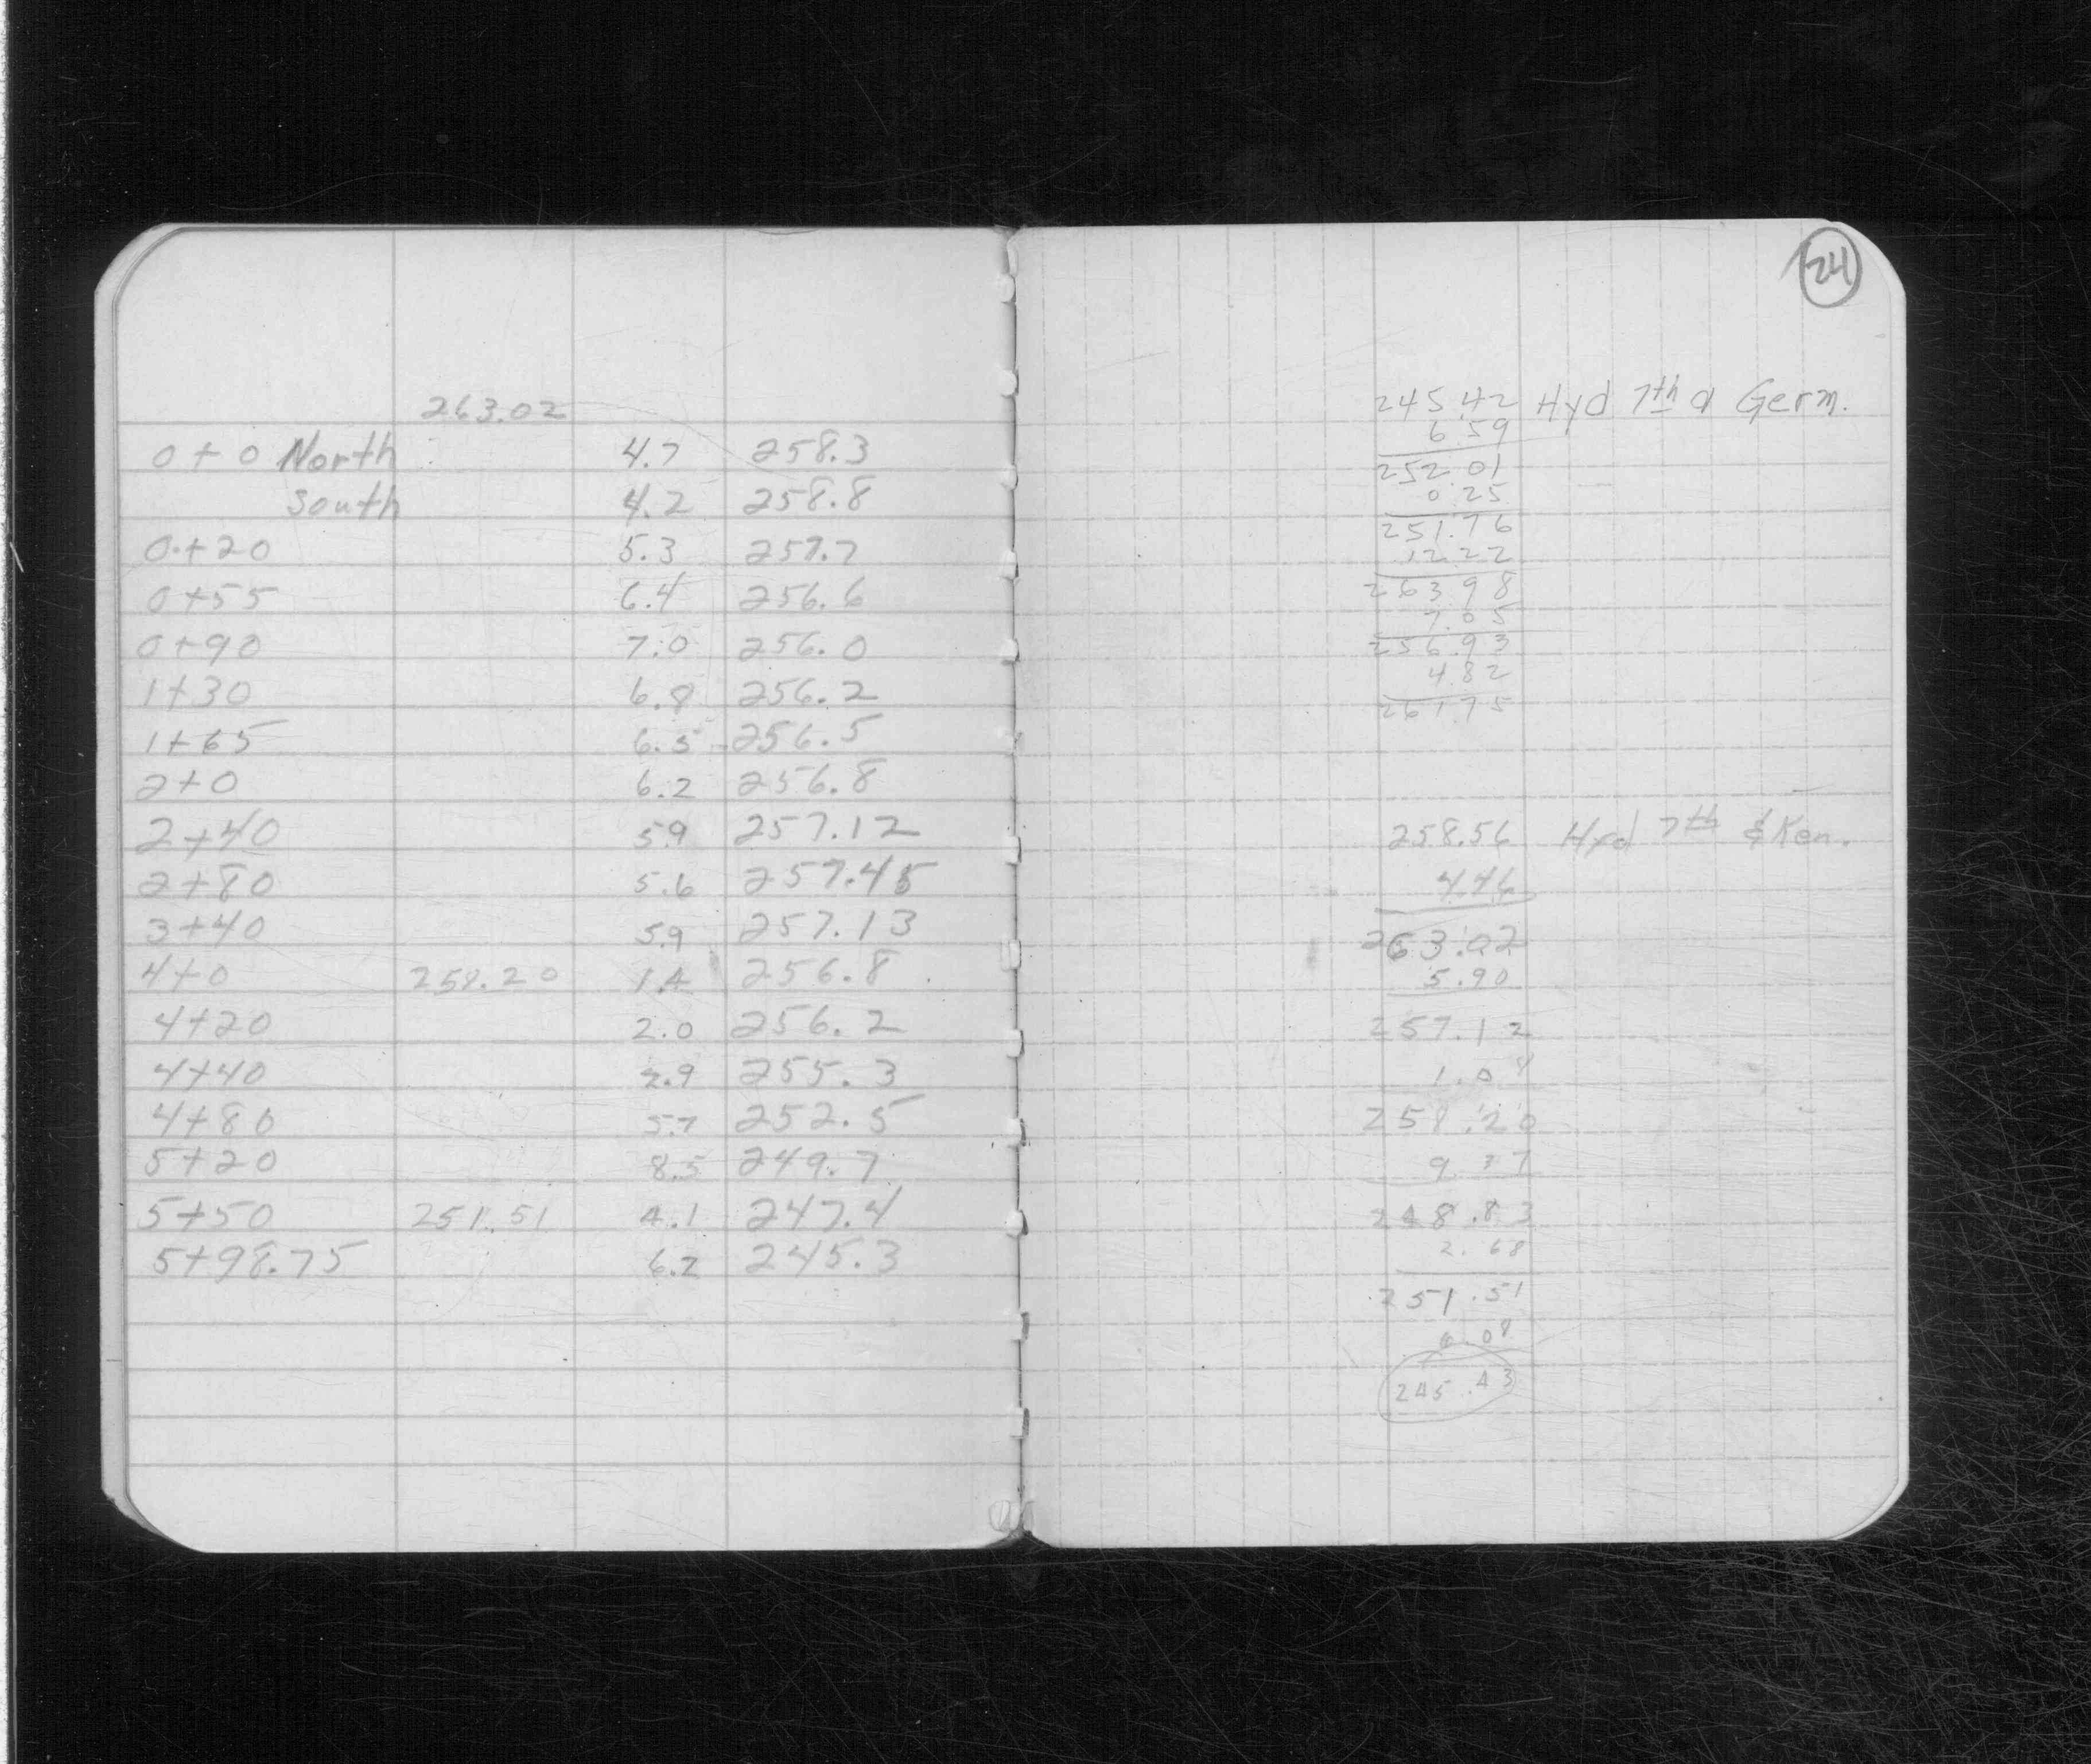 263.02
0+0 North 4.7 258.3
South 4.2 258.8
0+20 5.3 257.7
0+55 6.4 256.6
0+90 7.0 256.0
1+30 6.8 256.2
1+65 6.5 256.5
2+0 6.2 256.8
2+40 5.9 257.12
2+80 5.6 257.45
3+40 5.9 257.13
4+0 258.20 1.4 256.8
4+20 2.0 256.2
4+40 2.9 255.3
4+80 5.7 252.5
5+20 8.5 249.7
5+50 251.51 4.1 247.4
5+98.75 6.2 245.3
24
245.42 Hyd 7th a Germ.
6.59
252.01
0.25
251.76
12.22
263.98
7.05
256.93
4.82
261.75
258.56 Hyd 7th & Ken.
4.46
263.02
5.90
257.12
1.08
258.20
9.37
248.83
2.68
251.51
6.08
245.43